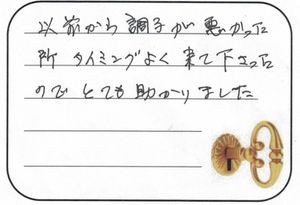 以前から調子が悪かった
所タイミングよく来て下さった
のでとても助かりました